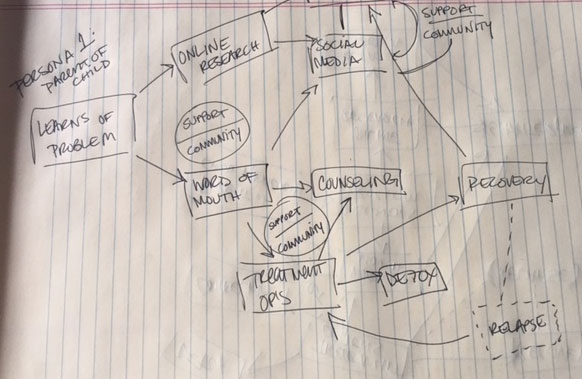 PERSONA 1:
PARENT OF
CHILD
ONLINE
RESEARCH
SOCIAL
MEDIA
SUPPORT
COMMUNITY
LEARNS OF
PROBLEM
SUPPORT
COMMUNITY
WORD OF
MOUTH
COUNSELING
RECOVERY
SUPPORT
COMMUNITY
TREATMENT
OPTS
DETOX
RELAPSE